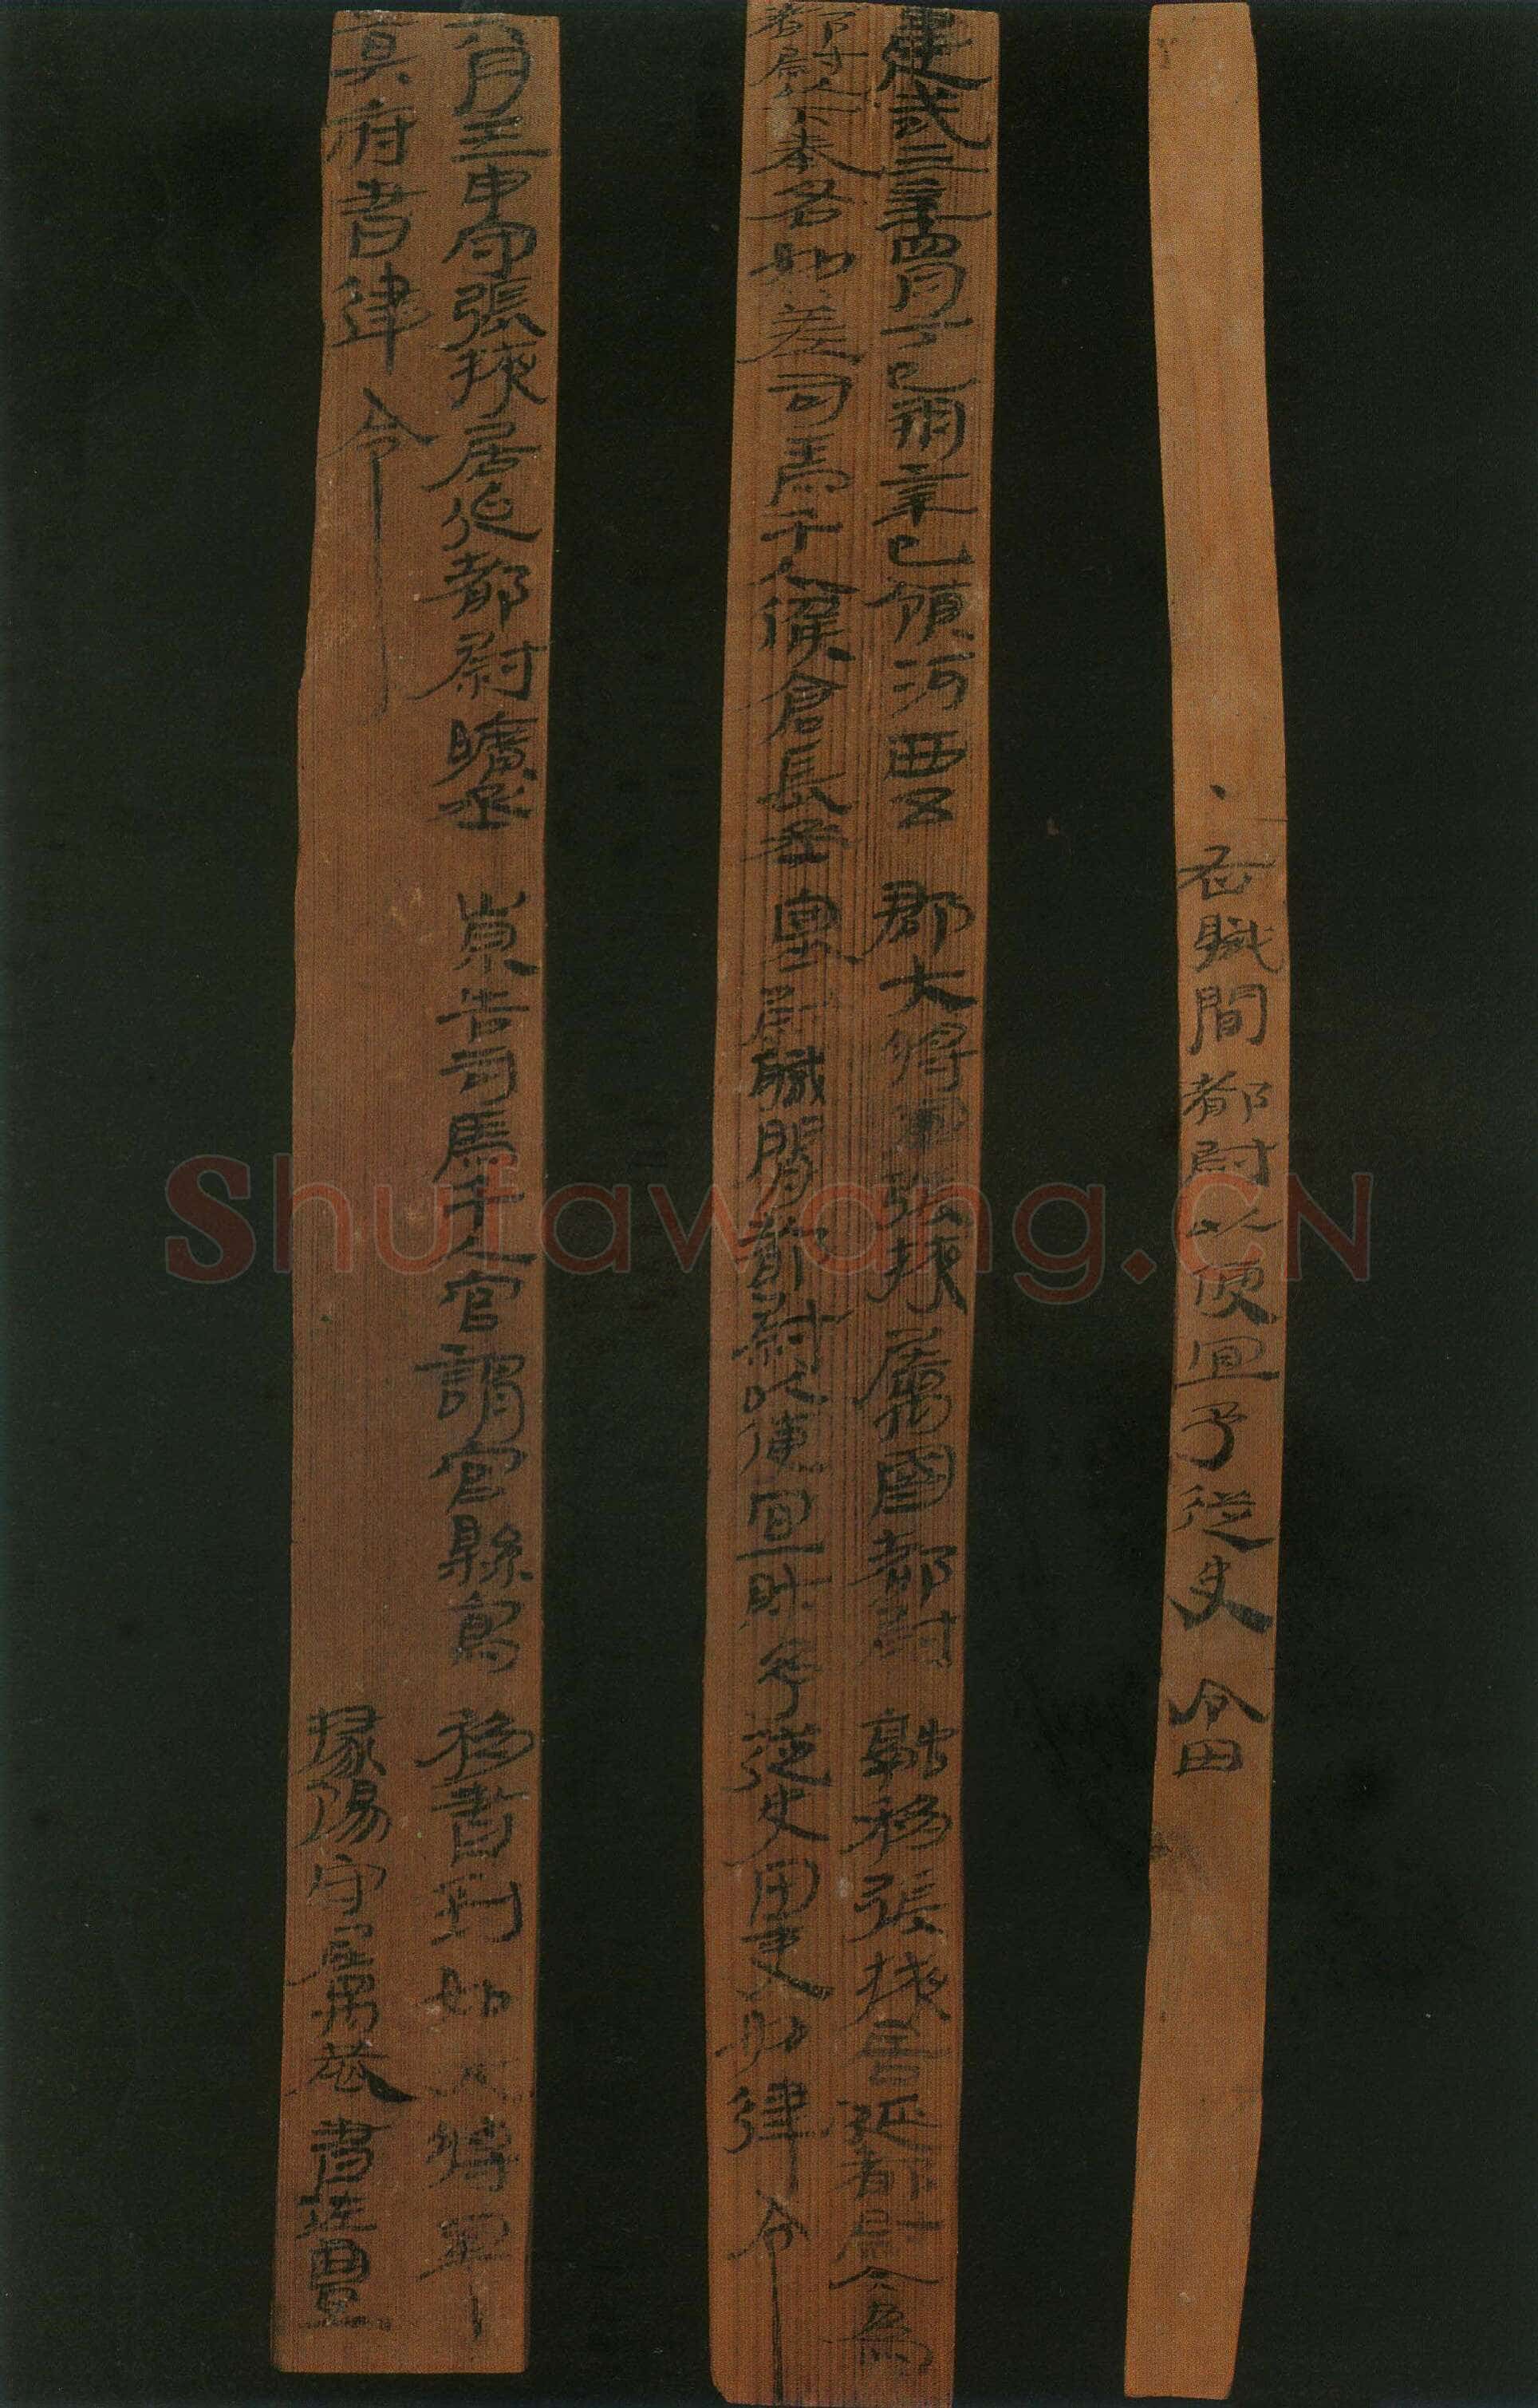 ·右職閒都尉以便宜予從史令田
建武三年四月丁巳朔辛巳領河西五郡大將軍張掖屬國都尉融移張掖居延都尉今為
都尉以下奉各如差司馬千人候倉長丞塞尉職閒都尉以便宜財予從史田吏如律令
六月壬申守張掖居延都尉曠丞崇告司馬千人官謂官縣寫移書到如大將軍
莫府書律令 掾陽守屬恭書佐豐
Shufawang.CN